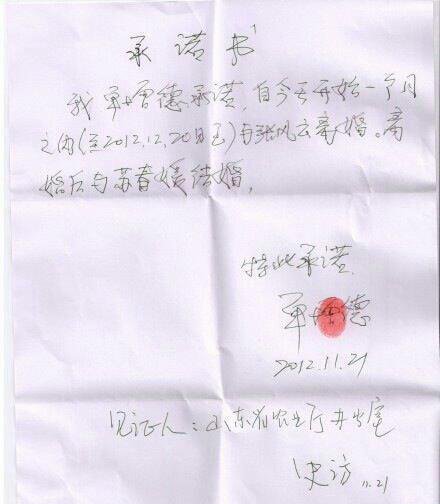 承诺书
我单增德承诺，自今天开始一个月
之内(至2012.12.20日)与张凤云离婚。离
婚后与苏春媛结婚。
特此承诺
单增德
2012.11.21
见证人：山东省农业厅办公室
史访 11.21